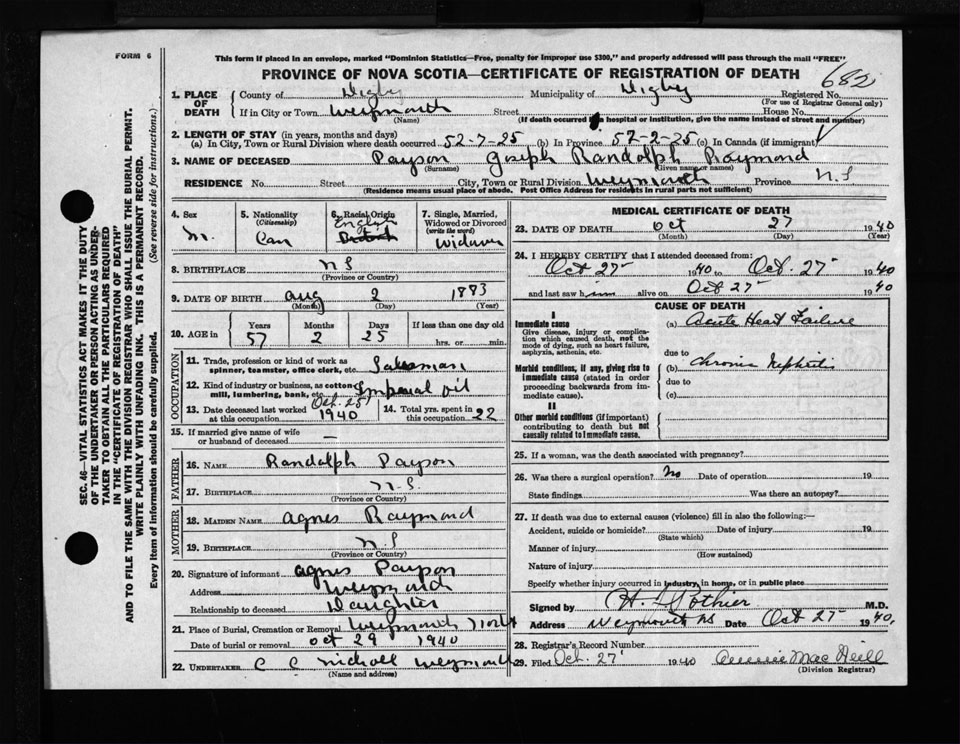 FORM 6
This form if placed in an envelope, marked "Dominion Statistics—Free, penalty for improper use $300," and properly addressed will pass through the mail "FREE"
PROVINCE OF NOVA SCOTIA—CERTIFICATE OF REGISTRATION OF DEATH
682
SEC. 46—VITAL STATISTICS ACT MAKES IT THE DUTY
OF THE UNDERTAKER OR PERSON ACTING AS UNDER-
TAKER TO OBTAIN ALL THE PARTICULARS REQUIRED
IN THE "CERTIFICATE OF REGISTRATION OF DEATH"
AND TO FILE THE SAME WITH THE DIVISION REGISTRAR WHO SHALL ISSUE THE BURIAL PERMIT.
WRITE PLAINLY WITH UNFADING INK. THIS IS A PERMANENT RECORD.
Every item of information should be carefully supplied. (See reverse side for instructions.)
1. PLACE OF DEATH
County of Digby Municipality of Digby Registered No.
(For use of Registrar General only)
If in City or Town Weymouth Street House No.
(Name) (If death occurred in hospital or institution, give the name instead of street and number)
2. LENGTH OF STAY (in years, months and days)
(a) In City, Town or Rural Division where death occurred 52-7-25 (b) In Province 52-2-25 (c) In Canada (if immigrant)
3. NAME OF DECEASED Payson Joseph Randolph Raymond
(Surname) (Given name or names)
RESIDENCE No. Street City, Town or Rural Division Weymouth Province N.S
(Residence means usual place of abode. Post Office Address for residents in rural parts not sufficient)
4. Sex
M.
5. Nationality
(Citizenship)
Can
6. Racial Origin
English
British
7. Single, Married,
Widowed or Divorced
(write the word)
Widower
8. BIRTHPLACE N S
(Province or Country)
9. DATE OF BIRTH Aug 2 1883
(Month) (Day) (Year)
10. AGE in
Years Months Days If less than one day old
57 2 25 hrs. or min.
OCCUPATION
11. Trade, profession or kind of work as
spinner, teamster, office clerk, etc. Salesman
12. Kind of industry or business, as cotton
mill, lumbering, bank, etc. Imperial oil
13. Date deceased last worked
at this occupation Oct. 25 1940
14. Total yrs. spent in
this occupation 22
15. If married give name of wife
or husband of deceased —
FATHER
16. NAME Randolph Payson
17. BIRTHPLACE N.S.
(Province or Country)
MOTHER
18. MAIDEN NAME Agnes Raymond
19. BIRTHPLACE N.S
(Province or Country)
20. Signature of informant Agnes Payson
Address
Relationship to deceased Daughter
21. Place of Burial, Cremation or Removal Weymouth North
Date of burial or removal Oct 29 1940
22. UNDERTAKER C C Nicholl Weymouth
(Name and address)
MEDICAL CERTIFICATE OF DEATH
23. DATE OF DEATH Oct 27 1940
(Month) (Day) (Year)
24. I HEREBY CERTIFY that I attended deceased from:
Oct 25 1940 to Oct. 25 1940
and last saw him alive on Oct 25 1940
CAUSE OF DEATH
I
Immediate cause
Give disease, injury or complica-
tion which caused death, not the
mode of dying, such as heart failure,
asphyxia, asthenia, etc.
(a) Acute Heat Failure
due to
Morbid conditions, if any, giving rise to
immediate cause (stated in order
proceeding backwards from im-
mediate cause).
(b) Chronic Nephritis
due to
(c)
II
Other morbid conditions (if important)
contributing to death but not
causally related to immediate cause.
25. If a woman, was the death associated with pregnancy?
26. Was there a surgical operation? No Date of operation 19
State findings Was there an autopsy?
27. If death was due to external causes (violence) fill in also the following:—
Accident, suicide or homicide? Date of injury 19
(State which)
Manner of injury
(How sustained)
Nature of injury
Specify whether injury occurred in industry, in home, or in public place
Signed by H. Pothier M.D.
Address Weymouth NS Date Oct 25 1940
28. Registrar's Record Number
29. Filed Oct. 27 1940 Annie MacNeill
(Division Registrar)